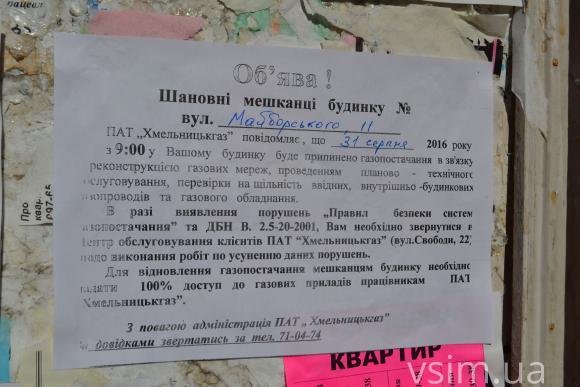 Об'ява !
Шановні мешканці будинку №
вул. Майборського, 11
ПАТ „Хмельницькгаз” повідомляє, що 31 серпня 2016 року
з 9:00 у Вашому будинку буде припинено газопостачання в зв'язку
реконструкцією газових мереж, проведенням планово - технічного
обслуговування, перевірки на щільність ввідних, внутрішньо-будинкових
газопроводів та газового обладнання.
В разі виявлення порушень „Правил безпеки систем
газопостачання” та ДБН В. 2.5-20-2001, Вам необхідно звернутися в
Центр обслуговування клієнтів ПАТ “Хмельницькгаз” (вул.Свободи, 22)
щодо виконання робіт по усуненню даних порушень.
Для відновлення газопостачання мешканцям будинку необхідно
надати 100% доступ до газових приладів працівникам ПАТ
Хмельницькгаз”.
З повагою адміністрація ПАТ „ Хмельницькгаз”
За довідками звертатись за тел. 71-04-74
Про
квар.
КВАРТИР
vsim.ua